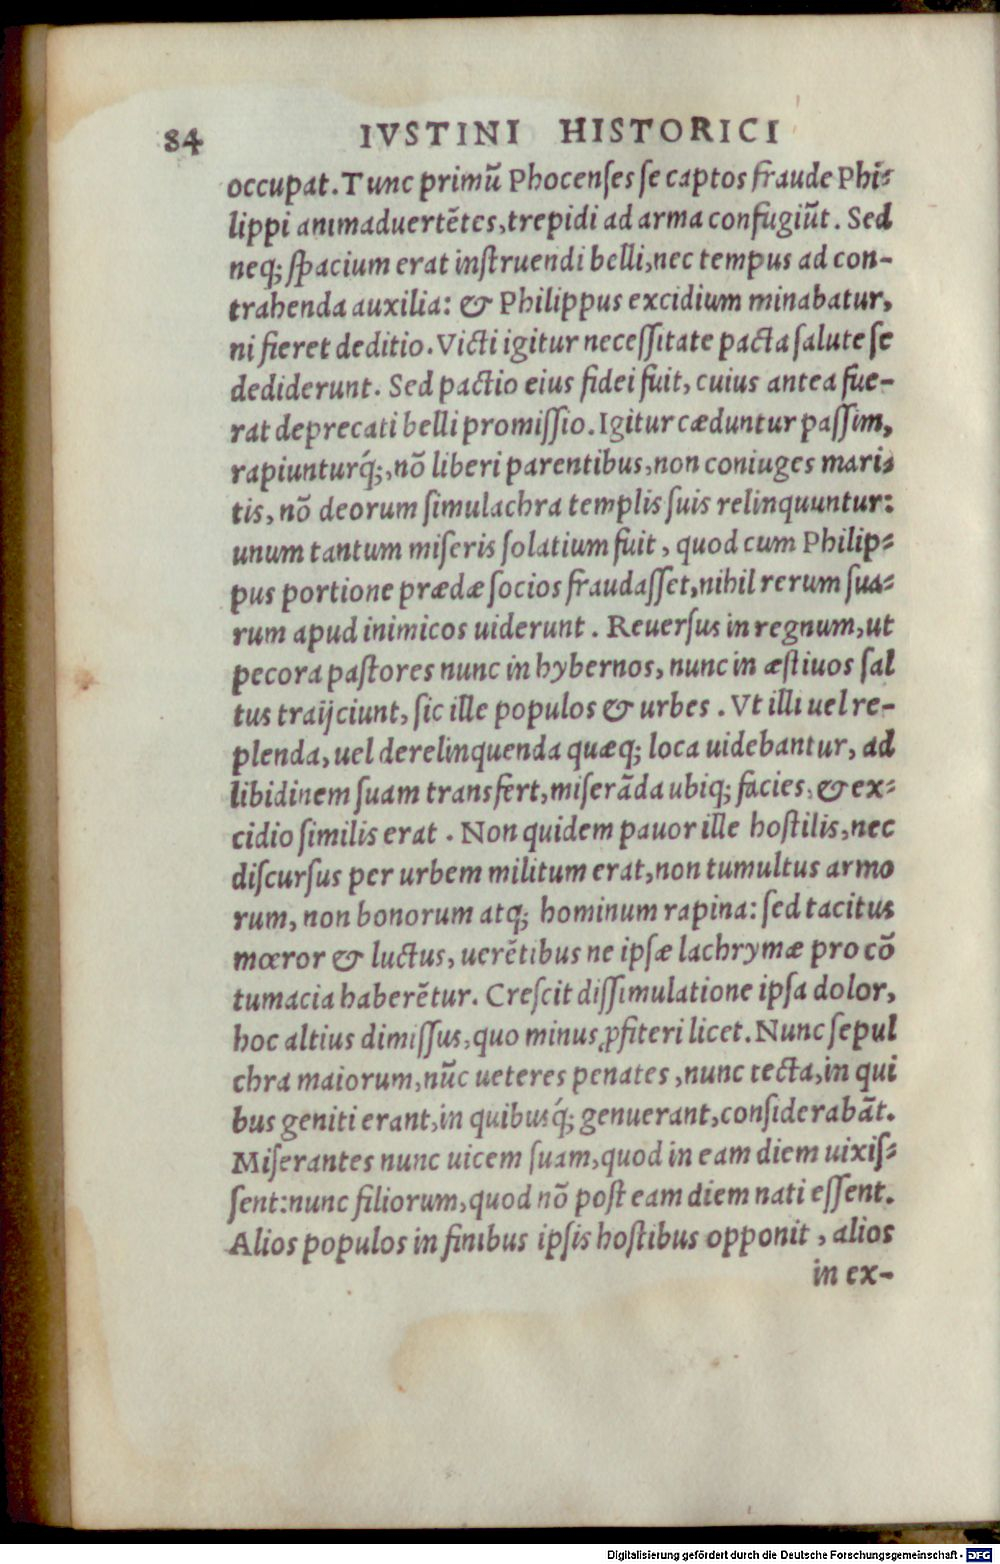 84 IVSTINI HISTORICI
occupat. Tunc primũ Phocenſes ſe captos fraude Phi-
lippi animaduertẽtes, trepidi ad arma confugiũt. Sed
neq; ſpacium erat inſtruendi belli, nec tempus ad con-
trahenda auxilia: & Philippus excidium minabatur,
ni fieret deditio. Victi igitur neceſſitate pacta ſalute ſe
dediderunt. Sed pactio eius fidei fuit, cuius antea fue-
rat deprecati belli promiſſio. Igitur cæduntur paſſim,
rapiunturq́;, nõ liberi parentibus, non coniuges mari-
tis, nõ deorum ſimulachra templis ſuis relinquuntur:
unum tantum miſeris ſolatium fuit, quod cum Philip-
pus portione prædæ ſocios fraudaſſet, nihil rerum ſua-
rum apud inimicos uiderunt. Reuerſus in regnum, ut
pecora paſtores nunc in hybernos, nunc in æſtiuos ſal
tus traijciunt, ſic ille populos & urbes. Vt illi uel re-
plenda, uel derelinquenda quæq; loca uidebantur, ad
libidinem ſuam transfert, miſerãda ubiq; facies, & ex-
cidio ſimilis erat. Non quidem pauor ille hoſtilis, nec
diſcurſus per urbem militum erat, non tumultus armo
rum, non bonorum atq; hominum rapina: ſed tacitus
mœror & luctus, uerẽtibus ne ipſæ lachrymæ pro cõ
tumacia haberẽtur. Creſcit diſſimulatione ipſa dolor,
hoc altius dimiſſus, quo minus ꝓfiteri licet. Nunc ſepul
chra maiorum, nũc ueteres penates, nunc tecta, in qui
bus geniti erant, in quibusq́; genuerant, conſiderabãt.
Miſerantes nunc uicem ſuam, quod in eam diem uixiſ-
ſent: nunc filiorum, quod nõ poſt eam diem nati eſſent.
Alios populos in finibus ipſis hoſtibus opponit, alios
in ex-
Digitalisierung gefördert durch die Deutsche Forschungsgemeinschaft - DFG